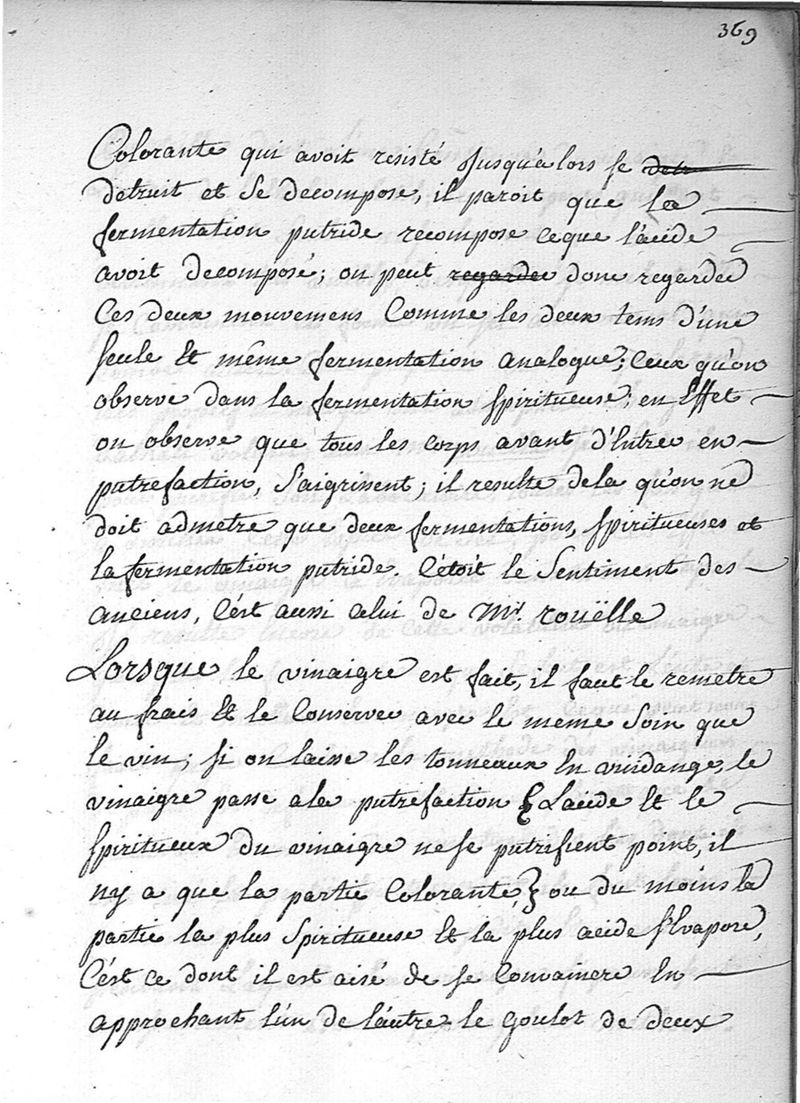 369
Colorante qui avoit resisté jusqu'alors se detr
detruit et se decompose, il paroit que la
fermentation putride recompose ceque l'acide
avoit decomposé; on peut regarder donc regarder
Ces deux mouvemens Comme les deux tems d'une
seule et même fermentation analogue; Ceux qu'on
observe dans la fermentation spiritueuse; en Effet
on observe que tous les corps avant d'Entrer en
putrefaction, s'aigrissent; il resulte dela qu'on ne
doit admetre que deux fermentations, spiritueuses et
la fermentation putride. C'étoit le Sentiment des
anciens, C'est aussi celui de Mr. rouëlle
Lorsque le vinaigre est fait, il faut le remetre
au frais Et le Conserver avec le meme Soin que
le vin; si on laisse les tonneaux En vuidange, le
vinaigre passe ala putrefaction { L'acide Et le
spiritueux du vinaigre ne se putrifient point, il
ny a que la partie Colorante, } ou du moins la
partie la plus Spiritueuse Et la plus acide s'Evapore,
C'est ce dont il est aisé de se Convaincre En
approchant l'un de l'autre le goulot de deux